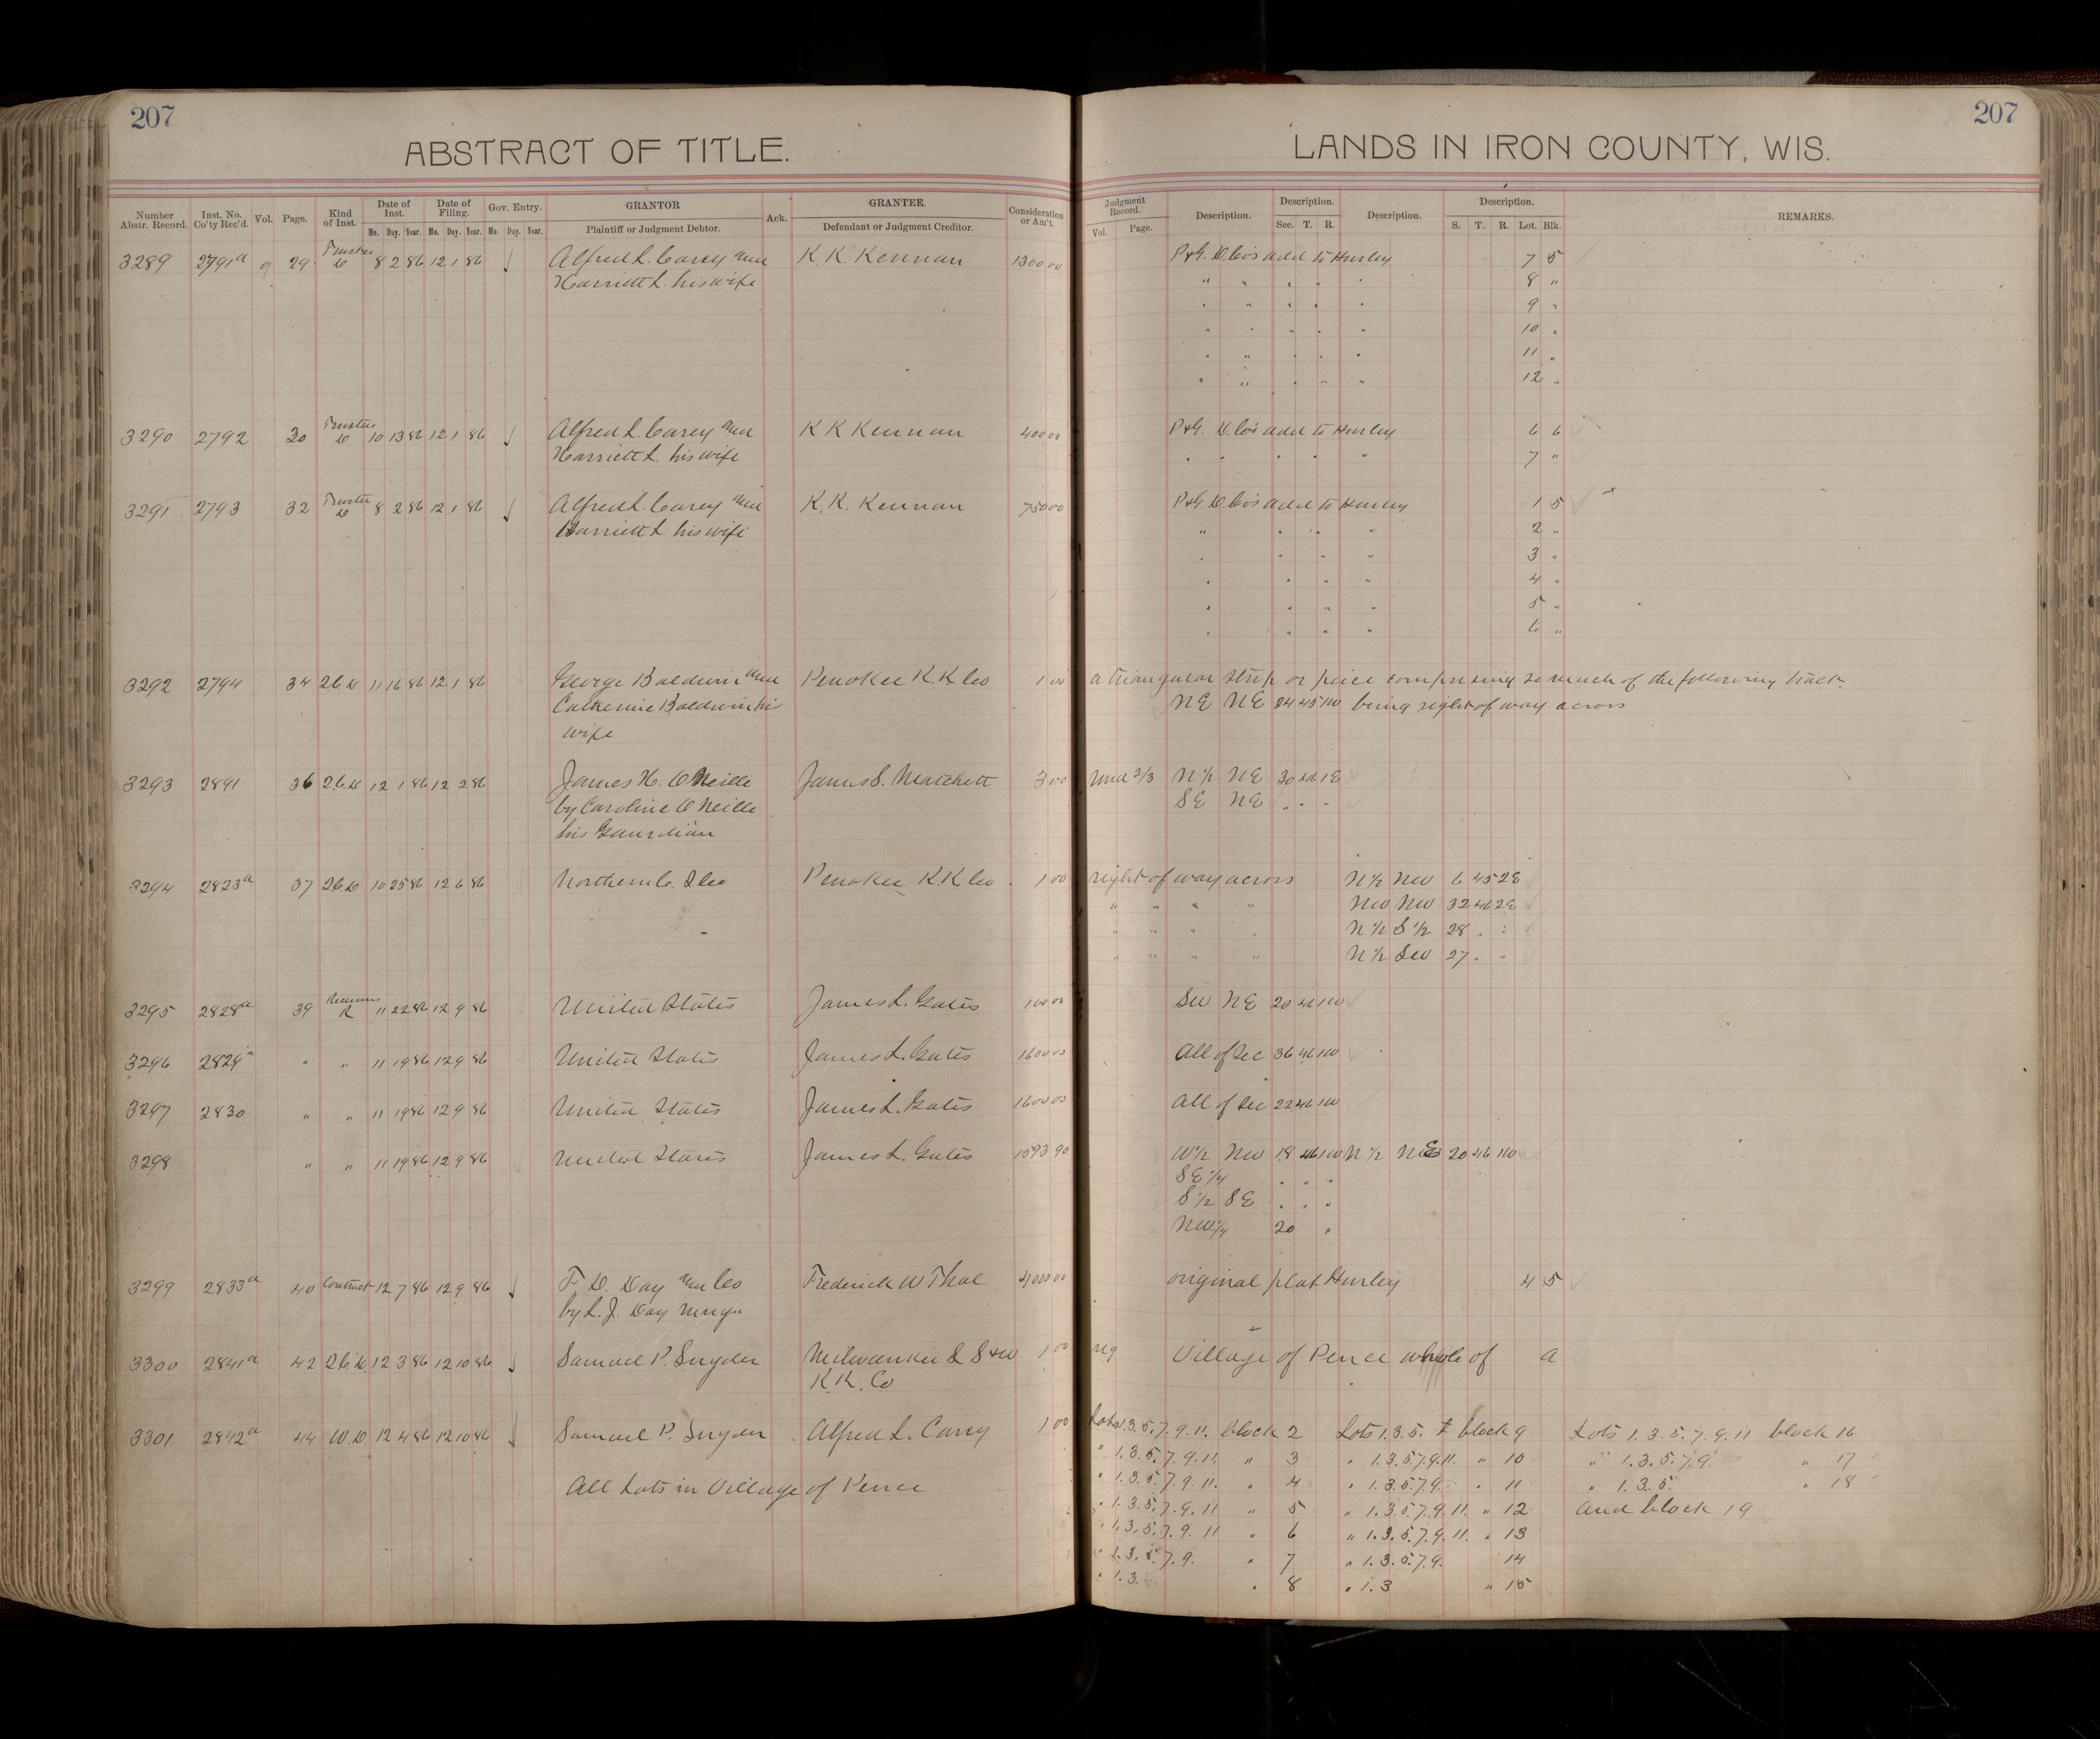 207
207
ABSTRACT OF TITLE.
LANDS IN IRON COUNTY, WIS.
Number Abstr. Record. Inst. No. Co'ty Rec'd. Vol. Page. Kind of Inst. Date of Inst. Mo. Day. Year. Date of Filing. Mo. Day. Year. Gov. Entry. Mo. Day. Year. GRANTOR Plaintiff or Judgment Debtor. Ack. GRANTEE. Defendant or Judgment Creditor. Consideration or Am't. Judgment Record. Vol. Page. Description. Description. Sec. T. R. Description. Description. S. T. R. Lot. Blk. REMARKS.
3289 2791a 9 29 Trustee D 8 2 86 12 1 86 Alfred L. Carey and K. K. Kennan 1300 00 P&G. D. Co's add to Hurley 7 5
Harriett L. his wife " " " " " 8 "
" " " " " 9 "
" " " " " 10 "
" " " " " 11 "
" " " " " 12 "
3290 2792 30 Trustee D 10 13 86 12 1 86 Alfred L. Carey and K K Kennan 400 00 P&G. D. Co's add to Hurley 6 6
Harriett L. his wife " " " " " 7 "
3291 2793 32 Trustee D 8 2 86 12 1 86 Alfred L. Carey and K. K. Kennan 750 00 P&G. D. Co's add to Hurley 1 5
Harriett L. his wife " " " " 2 "
" " " " 3 "
" " " " 4 "
" " " " 5 "
" " " " 6 "
3292 2794 34 2.C.D 11 16 86 12 1 86 George Baldwin and Penokee R.R. Co 1 00 a triangular strip or peice comprising so much of the following tract.
Catherine Baldwin his NE NE 24 45 1W being right of way across
wife
3293 2891 36 2.C.D 12 1 86 12 2 86 James H. O Neille James S. Matchett 3 00 und 2/3 N 1/2 NE 30 46 1E
by Caroline O Neille SE NE " " "
his Gaurdian
3294 2823a 37 2.C.D 10 25 86 12 6 86 Northern C. I Co Penokee R R Co. 1 00 right of way across N 1/2 NW 6 45 2E
" " " " NW NW 32 46 2E
" " " " N 1/2 S 1/2 28 " "
" " " " N 1/2 SW 27 " "
3295 2828a 39 Receivers R 11 22 86 12 9 86 United States James L. Gates 100 00 SW NE 20 46 1W
3296 2829a " " 11 19 86 12 9 86 United States James L. Gates 1600 00 All of Sec 36 46 1W
3297 2830 " " 11 19 86 12 9 86 United States James L. Gates 1600 00 All of Sec 22 46 1W
3298 " " 11 19 86 12 9 86 United States James L. Gates 1593 90 W 1/2 NW 18 46 1W N 1/2 NE 20 46 1W
SE 1/4 " " "
S 1/2 SE " " "
NW 1/4 20 "
3299 2833a 40 Contract 12 7 86 12 9 86 F. D. Day and Co Frederick W Thal 4000 00 original plat Hurley 4 5
by L. J. Day
3300 2841a 42 2.C.D. 12 3 86 12 10 86 Samuel P. Snyder Milwaukee L S & W 1 00 Village of Pence whole of a
R.R. Co
3301 2842a 44 W.D. 12 4 86 12 10 86 Samuel P. Snyder Alfred L. Carey 1 00 Lots 1.3.5.7.9.11. block 2 Lots 1.3.5. 7 block 9 Lots 1.3.5.7.9.11 block 16
" 1.3.5.7.9.11. " 3 " 1.3.5.7.9.11. " 10 " 1.3.5.7.9. " 17
All Lots in Village of Pence " 1.3.5.7.9.11. " 4 " 1.3.5.7.9. " 11 " 1.3.5. " 18
" 1.3.5.7.9.11 " 5 " 1.3.5.7.9.11. " 12 and block 19
" 1.3.5.7.9.11 " 6 " 1.3.5.7.9.11. " 13
" 1.3.5.7.9. " 7 " 1.3.5.7.9. 14
" 1.3. " 8 " 1.3 " 15